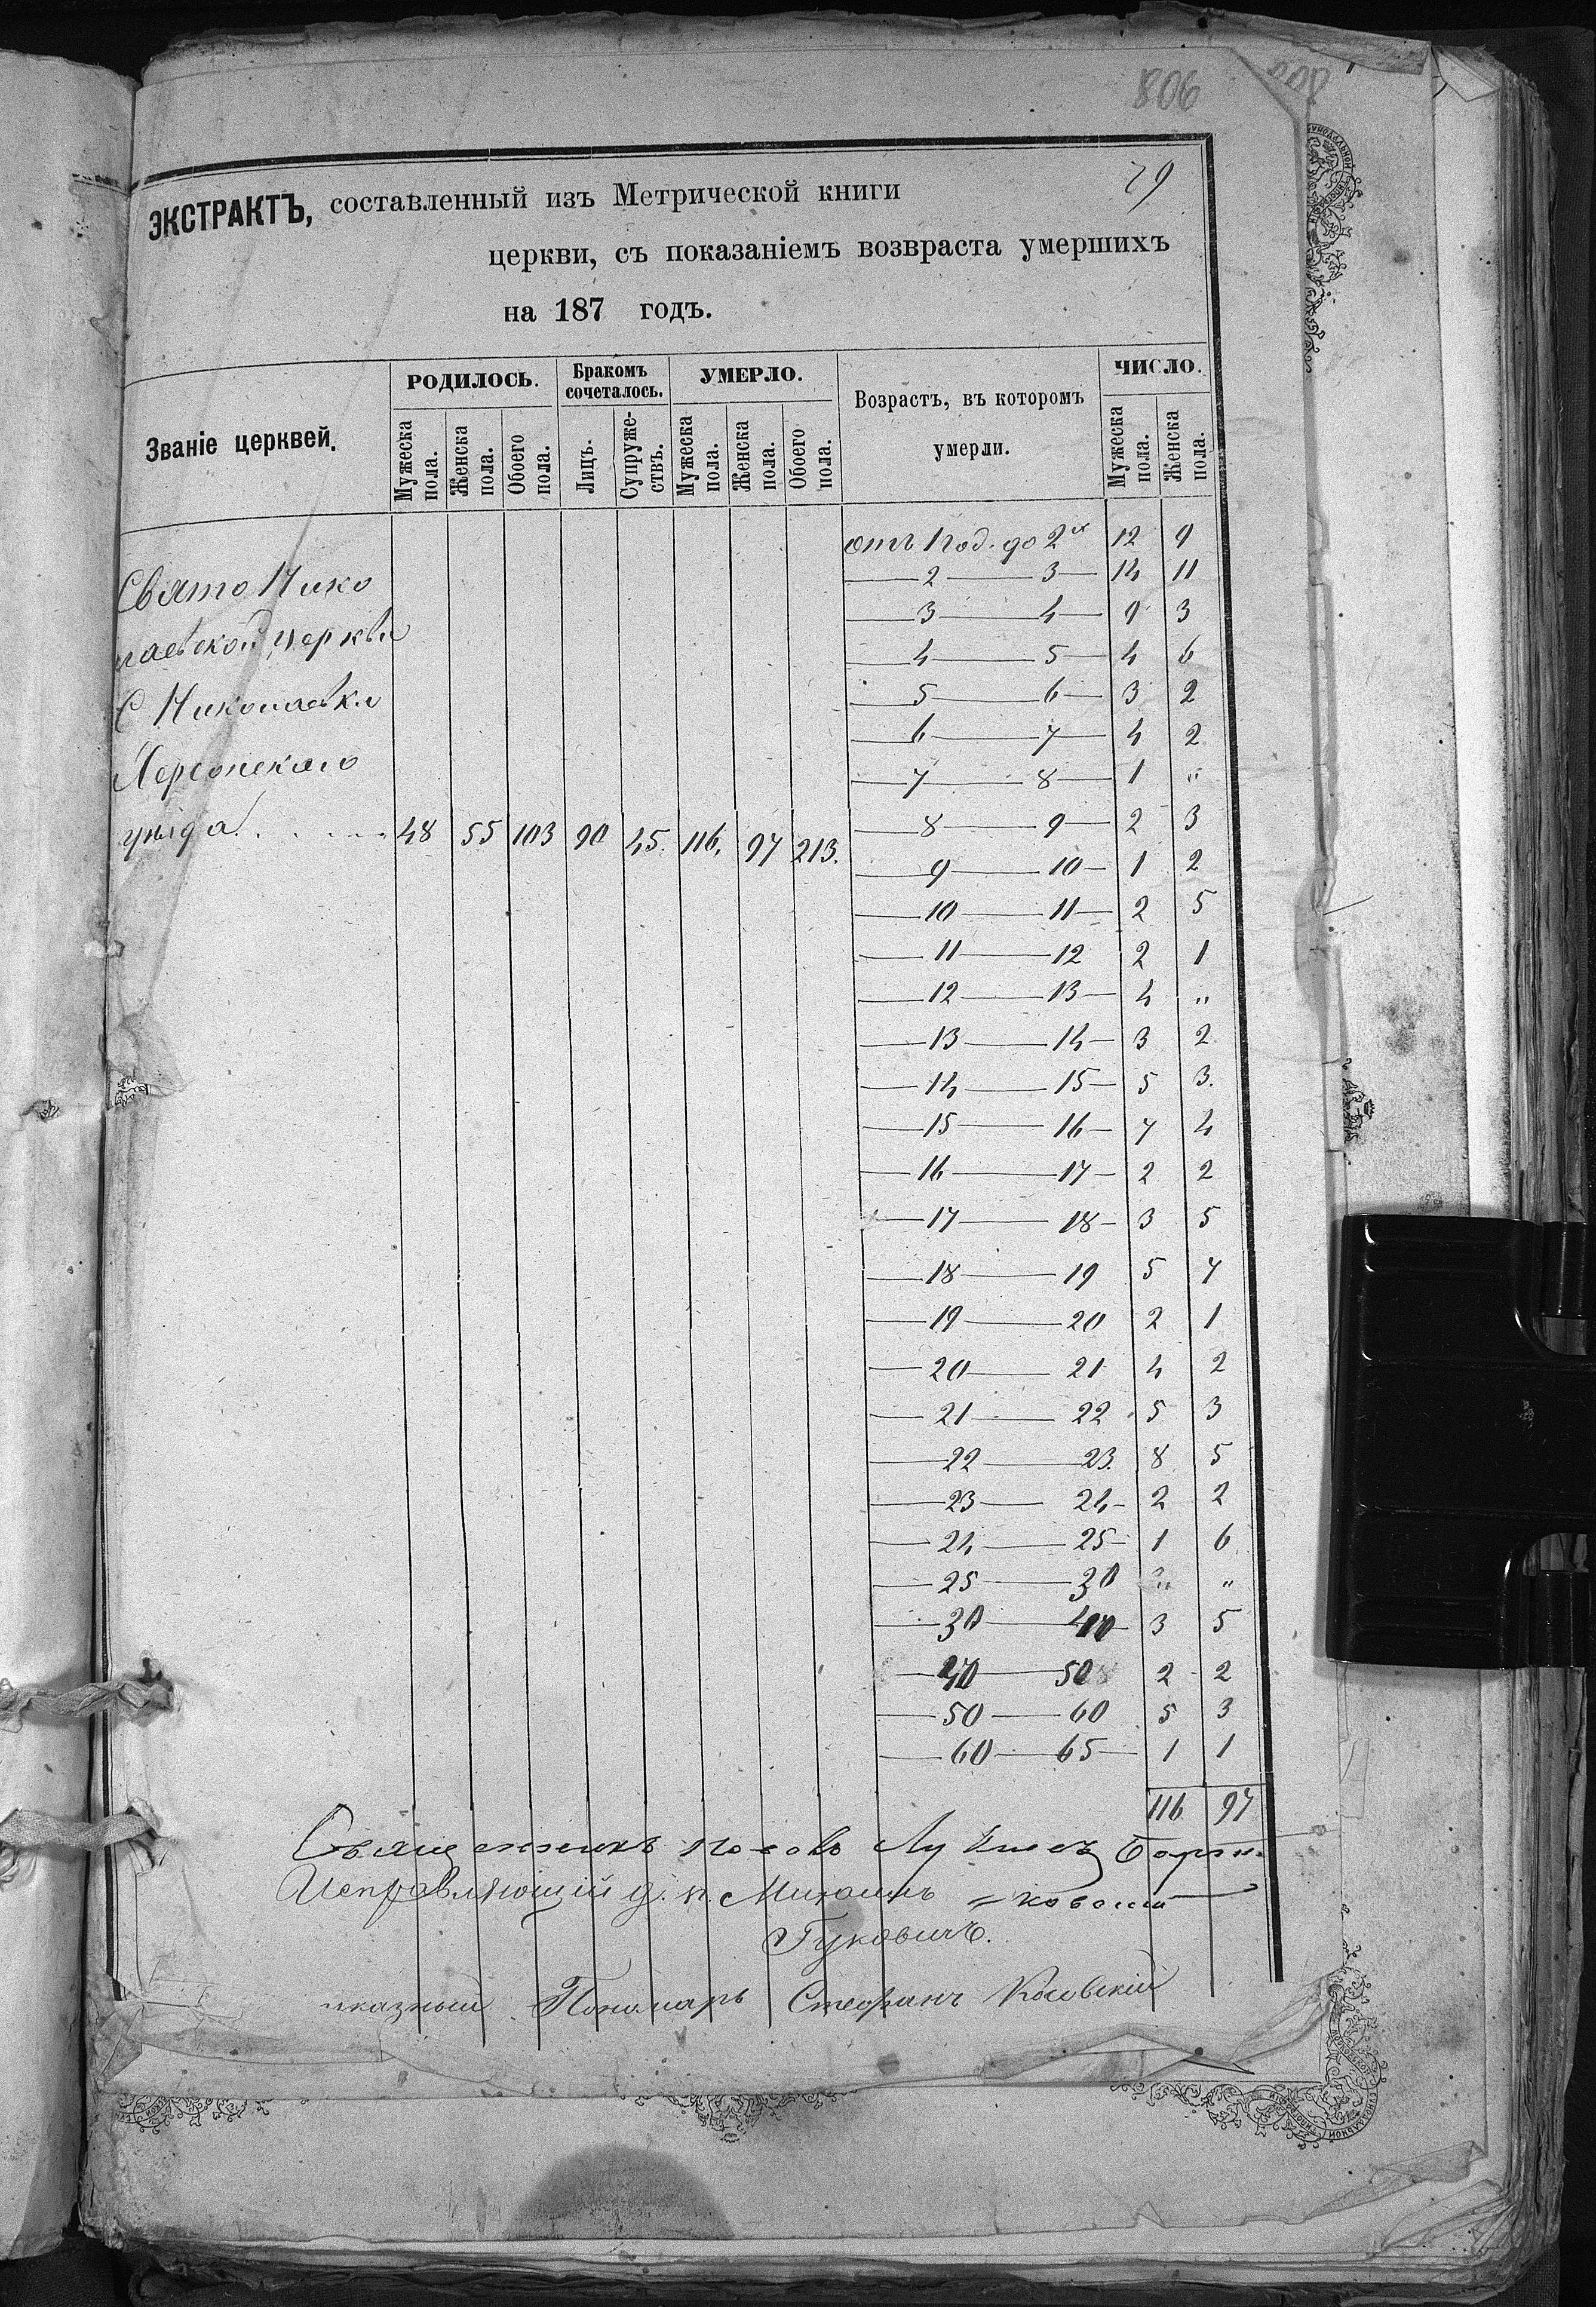 806
808
79
ЭКСТРАКТЪ, составленный изъ Метрической книги
церкви, съ показаніемъ возвраста умершихъ
на 187 годъ.
Званіе церквей.
РОДИЛОСЬ.
Бракомъ сочеталось.
УМЕРЛО.
Возрастъ, въ которомъ умерли.
ЧИСЛО.
Мужеска пола. Женска пола. Обоего пола. Лицъ. Супружествъ. Мужеска пола. Женска пола. Обоего пола. Мужеска пола. Женска пола.
Свято Нико
лаевской церкви
С Николаевки
Херсонскаго
уѣзда. . . . . . 48 55 103 90 45. 116. 97 213.
отъ 1 год. до 2х 12 9
— 2 — 3 — 14 11
— 3 — 4 — 9 3
— 4 — 5 — 4 6
— 5 — 6 — 3 2
— 6 — 7 — 4 2
— 7 — 8 — 1 "
— 8 — 9 — 2 3
— 9 — 10 — 1 2
— 10 — 11 — 2 5
— 11 — 12 2 1
— 12 — 13 — 4 "
— 13 — 14 — 3 2
— 14 — 15 — 5 3.
— 15 — 16 — 7 4
— 16 — 17 — 2 2
— 17 — 18 — 3 5
— 18 — 19 5 7
— 19 — 20 2 1
— 20 — 21 4 2
— 21 — 22 5 3
— 22 — 23. 8 5
— 23 — 24 — 2 2
— 24 — 25 — 1 6
— 25 — 30 " "
— 30 — 40 — 3 5
— 40 — 50 2 2
— 50 — 60 5 3
— 60 — 65 — 1 1
116 97
Священникъ Іосовъ Лукичъ
Исправляющій д. п. Михаилъ
Гуковичъ.
Пономарь Стефанъ